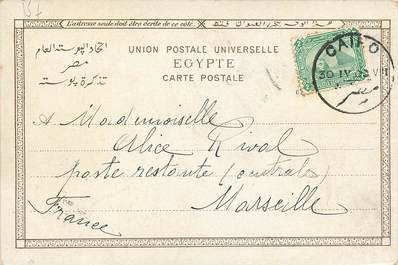 L'adresse seule doit être écrite de ce côté.
UNION POSTALE UNIVERSELLE
EGYPTE
CARTE POSTALE
اتحاد البوسته العام
مصر
تذكرة بوسته
CAIRO
30 IV
A Mademoiselle
Alice Rival
poste restante (centrale)
Marseille
France